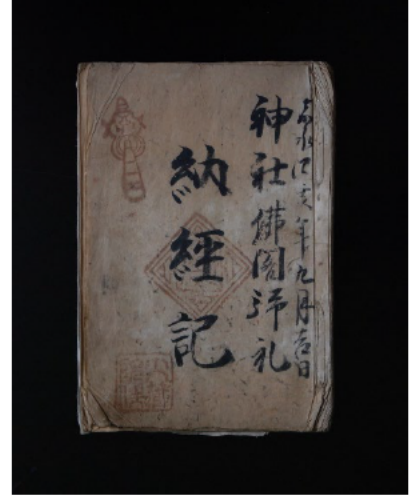 嘉永四亥年九月吉日
神社佛閣拜礼
納經記